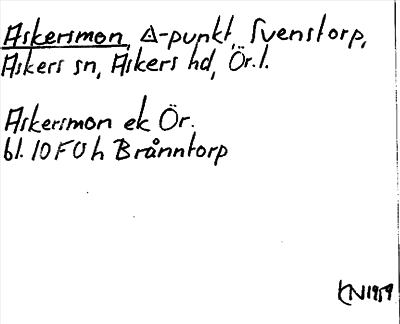 Askersmon, △-punkt, Svenstorp,
Askers sn, Askers hd, Ör. l.
Askersmon ek Ör.
bl. 10F0h Brånntorp
KN1959